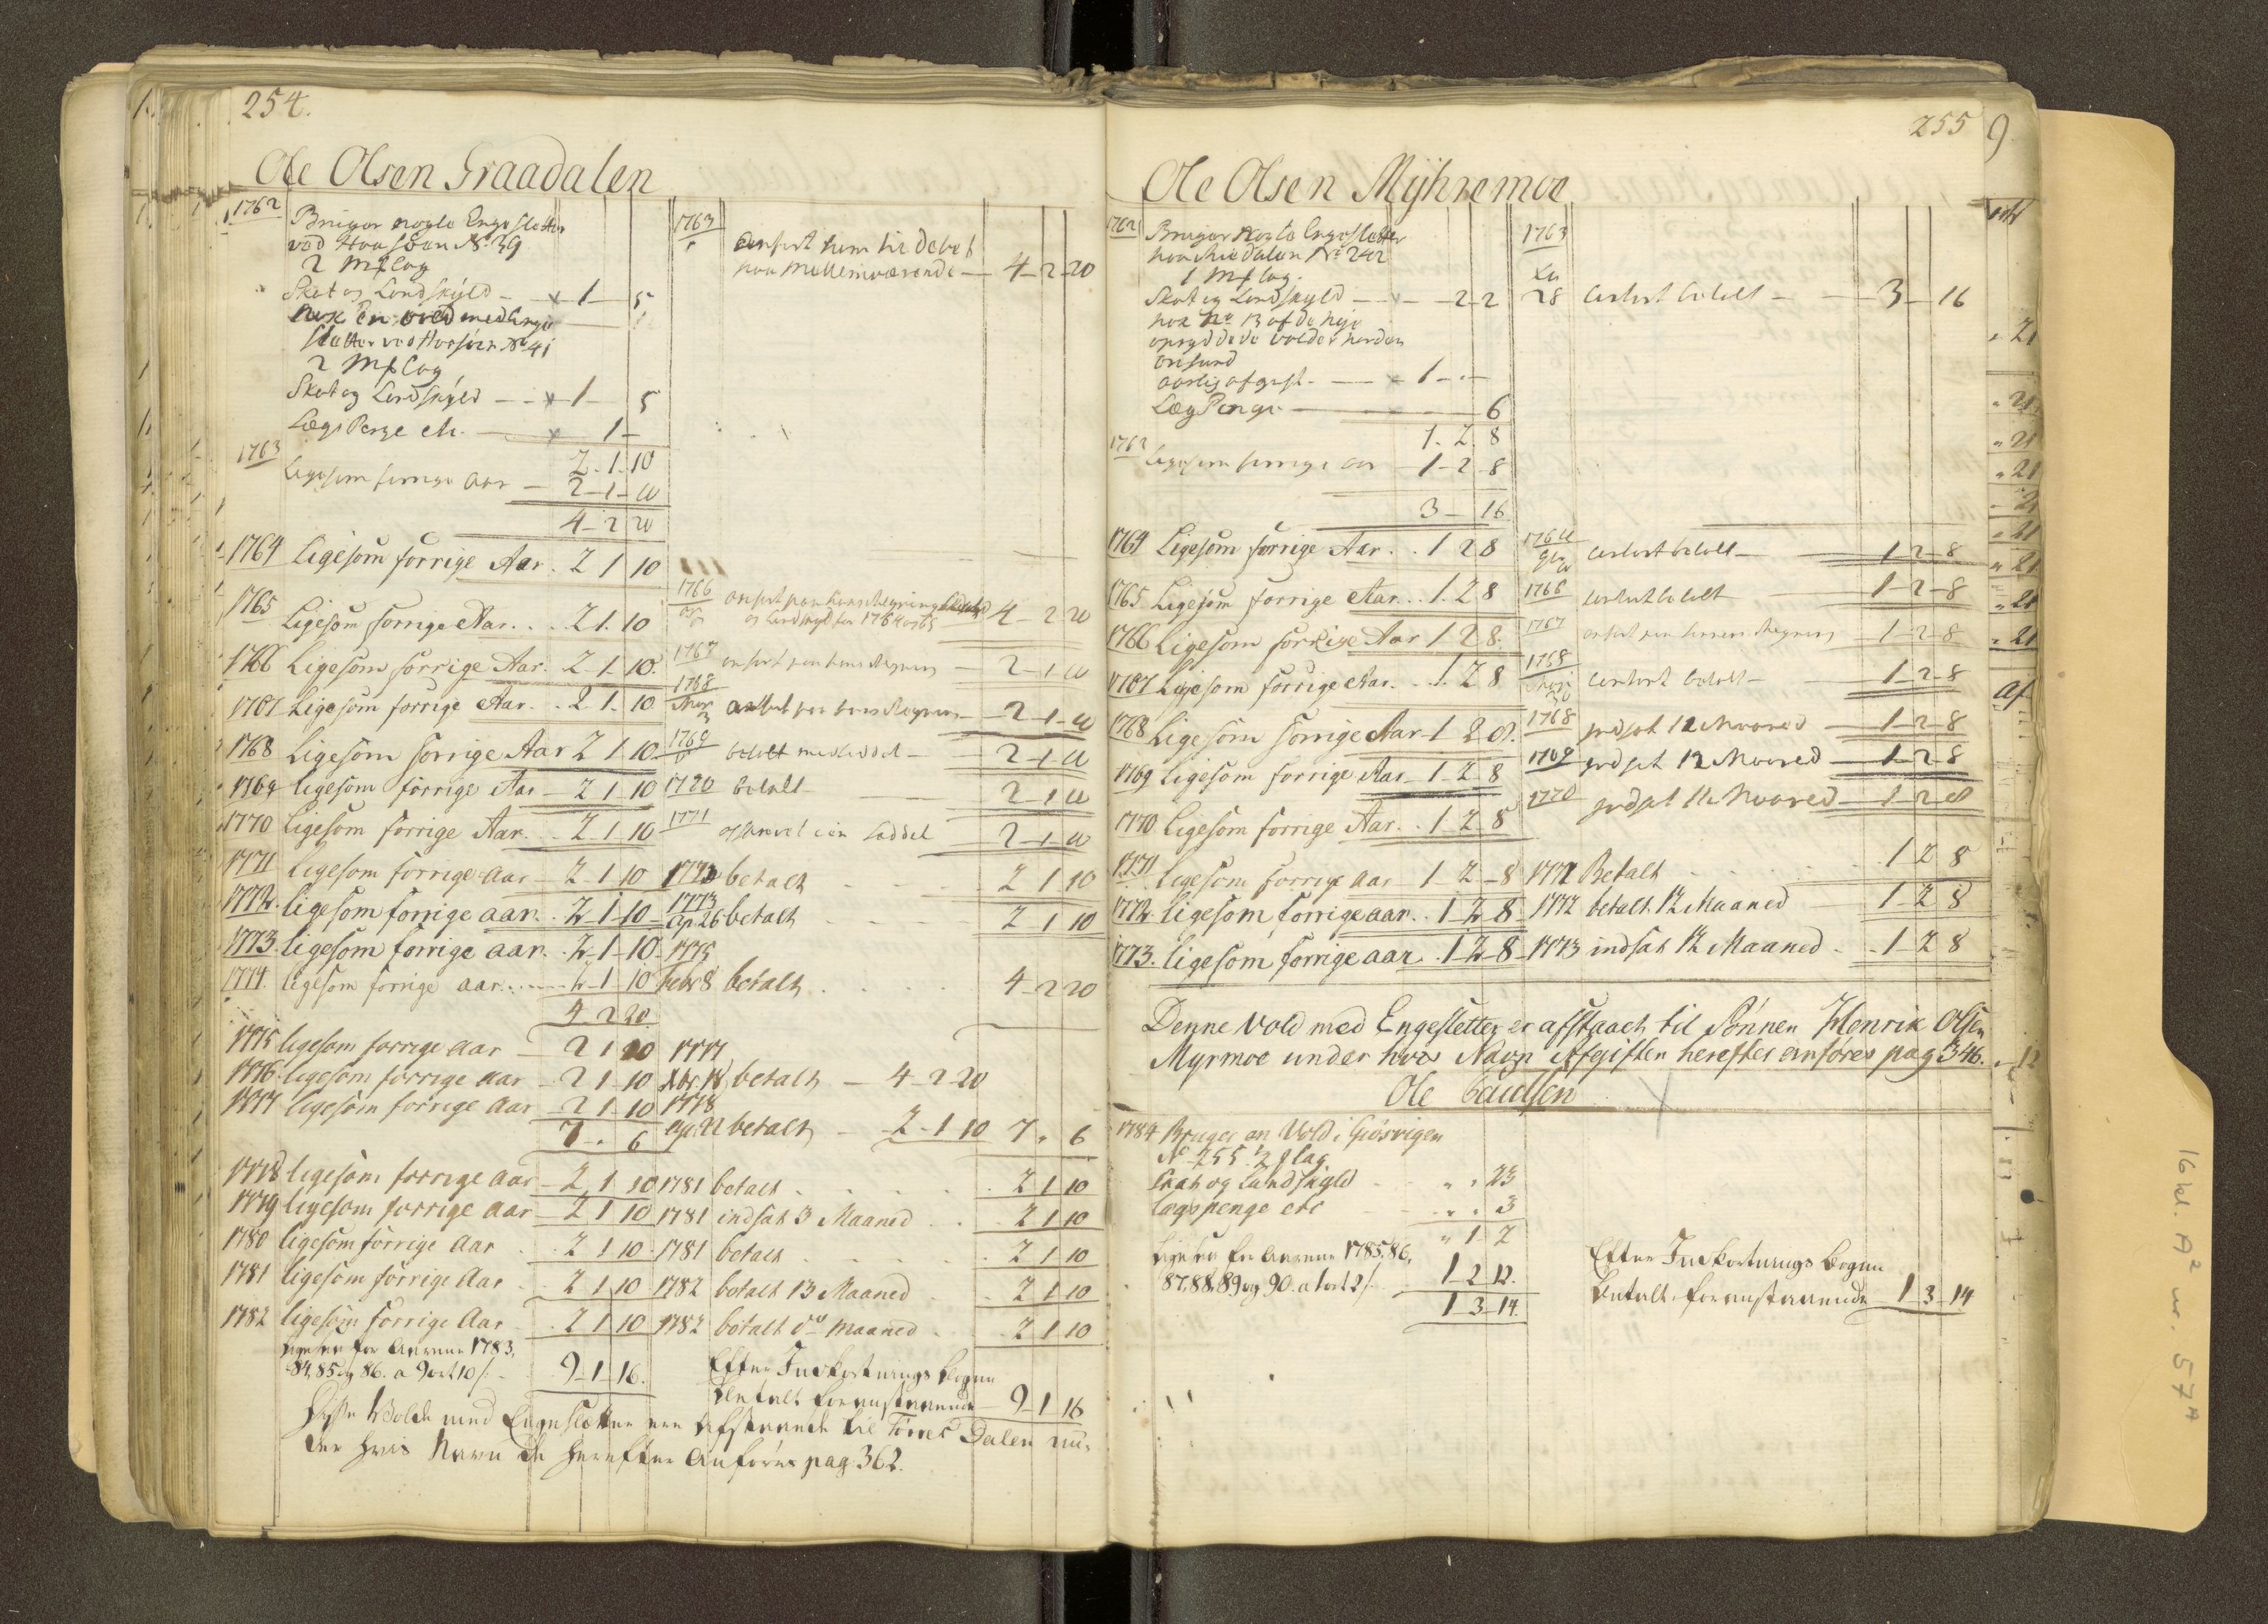 254.
Ole Olsen Graadalen
1762
Bruger nogle Engesletter
ved Haasøen No. 39
2 Mf lag
Skat og Landskyld - 1 - 5
nok En vold med Enge
sletter ved Haasøen No 41
2 Mf lag
Skat og Landskyld - 1 - 5
Lægs Penge etc. - 1 -
2 - 1 - 10
1763
Ligesom forrige Aar - 2 - 1 - 10
4 - 2 20
1764 Ligesom forrige Aar . 2 1 10
1765 Ligesom forrige Aar. . . 2 1. 10
1766 Ligesom forrige Aar. 2 - 1 - 10.
1767 Ligesom forrige Aar. . 2. 1. 10
1768 Ligesom forrige Aar 2 1 - 10
1769 ligesom forrige Aar - 2 1 10
1770 ligesom forrige Aar . . 2 1 - 10
1771 ligesom forrige aar - 2 1 10
1772. ligesom forrige aar. . 2 - 1 - 10
1773. ligesom forrige aar. . 2 - 1 - 10
1774. ligesom forrige aar . . . . 2 - 1 10
4 - 2 20.
1775 ligesom forrige aar - 2 1 10
1776. ligesom forrige aar - 2 1 - 10
1777 ligesom forrige aar - 2 1 - 10
7 - . 6
1778 ligesom forrige aar - 2 1 10
1779 ligesom forrige aar - 2 1 10
1780 ligesom forrige Aar . . 2 1 10
1781 ligesom forrige Aar . . 2 1 10
1782 ligesom forrige Aar . . 2 1 10
ligesaa for Aarene 1783,
84, 85 og 86. a 9 ort 10 s. - 9 - 1 - 16.
1763
anført ham til debet
paa Mellemværende - 4 - 2 - 20
1766
anført paa hans Regning
og Landskyld for 1764 og 65 4 - 2 20
1767 anført paa hans Regning - 2 - 1 - 10
1768
anført paa hans Regning - 2 - 1 - 10
1769
betalt med Seddel - 2 - 1 - 10
1770 betalt 2 - 1 10
1771 Seddel 2 - 1 - 10
1772 betalt . . . 2 1 10
1773
Ap 26 betalt - 2 1 10
1775
Febr 8 betalt . . . . 4 - 2 20
1777
Xbr 18 betalt - 4 - 2 20
1778
Apr 11 betalt - 2 - 1 10 7 . 6
1781 betalt . . . . 2 1 10
1781 indsat 3 Maaned . . 2 1 10
1781 betalt . . . . 2 1 10
1782 betalt 13 Maaned . 2 1 10
1782 betalt do Maaned . . 2 1 10
Efter Indkortnings bogen
betalt foranstaaende - 9 - 1 16
Disse Volde med Engesletter ere Afstaaede til Torres Dalen un-
der hvis Navn de herefter Anføres pag 362.
255
Ole Olsen Mÿhremoe
1762
Bruger nogle Engesletter
paa Miedalen No 242
1 Mf lag.
Skat og Landskyld - 2 - 2
nok No 13 af de nye
opryddede volder norden
aarlig afgift - 1 - . -
Læg Penge - 6
1. 2. 8
Ligesom forrige aar - 1 - 2 - 8
3 - 16
1764 Ligesom forrige Aar . . 1 2 8
1765 Ligesom forrige Aar. . 1. 2 8
1766 Ligesom forrige Aar 1 2 8.
1767 Ligesom forrige Aar. . 1. 2 8
1768 Ligesom forrige Aar - 1 2 8.
1769 Ligesom forrige Aar - 1 - 2 - 8
1770 Ligesom forrige Aar. . 1 - 2 8
1771 ligesom forrige aar 1 - 2 - 8
1772. ligesom forrige aar. . 1 2 8
1773. ligesom forrige aar . 1 - 2 - 8
1763
28 Cortert betalt - 3 - 16
1764
Cortert betalt - 1 - 2 - 8
1766 Cortert betalt 1 - 2 - 8
1767 anført paa Regning 1 - 2 - 8
1768
Cortert betalt - 1 - 2 - 8
1768 indsat 12 Maaned - 1 - 2 - 8
1769 indsat 12 Maaned - 1 - 2 - 8
1770 indsat 12 Maaned - 1 - 2 - 8
1771 Betalt . . . . 1 2 8
1772 betalt 12 Maaned 1 2 8
1773 indsat 12 Maaned - . 1 2 8
Denne Vold med Engesletter er afstaaet til Sønnen Henrik Olsen
Myrmoe under hvis Navn Afgiften herefter anføres pag 346.
Ole Paulsen
1784 Bruger en Vold i Giøsvigen
No 255. ½ f lag
Skat og Landskyld . " . 23
lægspenge etc - . " . 3
" 1 2
ligesaa for Aarene 1785, 86,
87, 88, 89 og 90. a 1 ort 2 s. . 1 2 12.
1 3 14.
Efter Indkortnings bogen
betalt foranstaaende - 1 - 3 - 14
16 kl. A2 nr. 57a